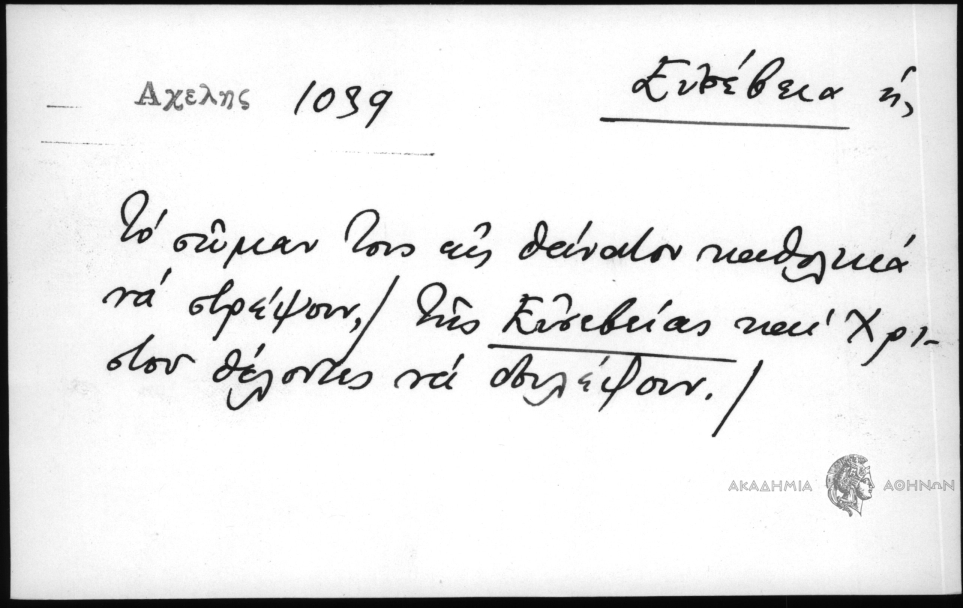 Αχελης 1039
Εὐσέβεια ἡ,
Τό σῶμαν τους εἰς θάνατον καθολικά
νά στρέψουν,/ τῆς Εὐσεβείας καί Χρι-
στου θέλοντες νά δουλέψουν./
ΑΚΑΔΗΜΙΑ ΑΘΗΝΩΝ